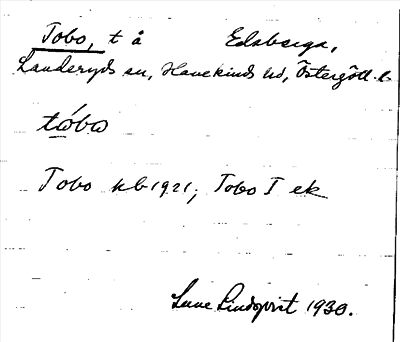 Tobo, t å Edsberga,
Landeryds sn, Hanekinds hd, Östergötl. l.
tωbω
Tobo kb 1921; Tobo I ek
Sune Lindqvist 1930.